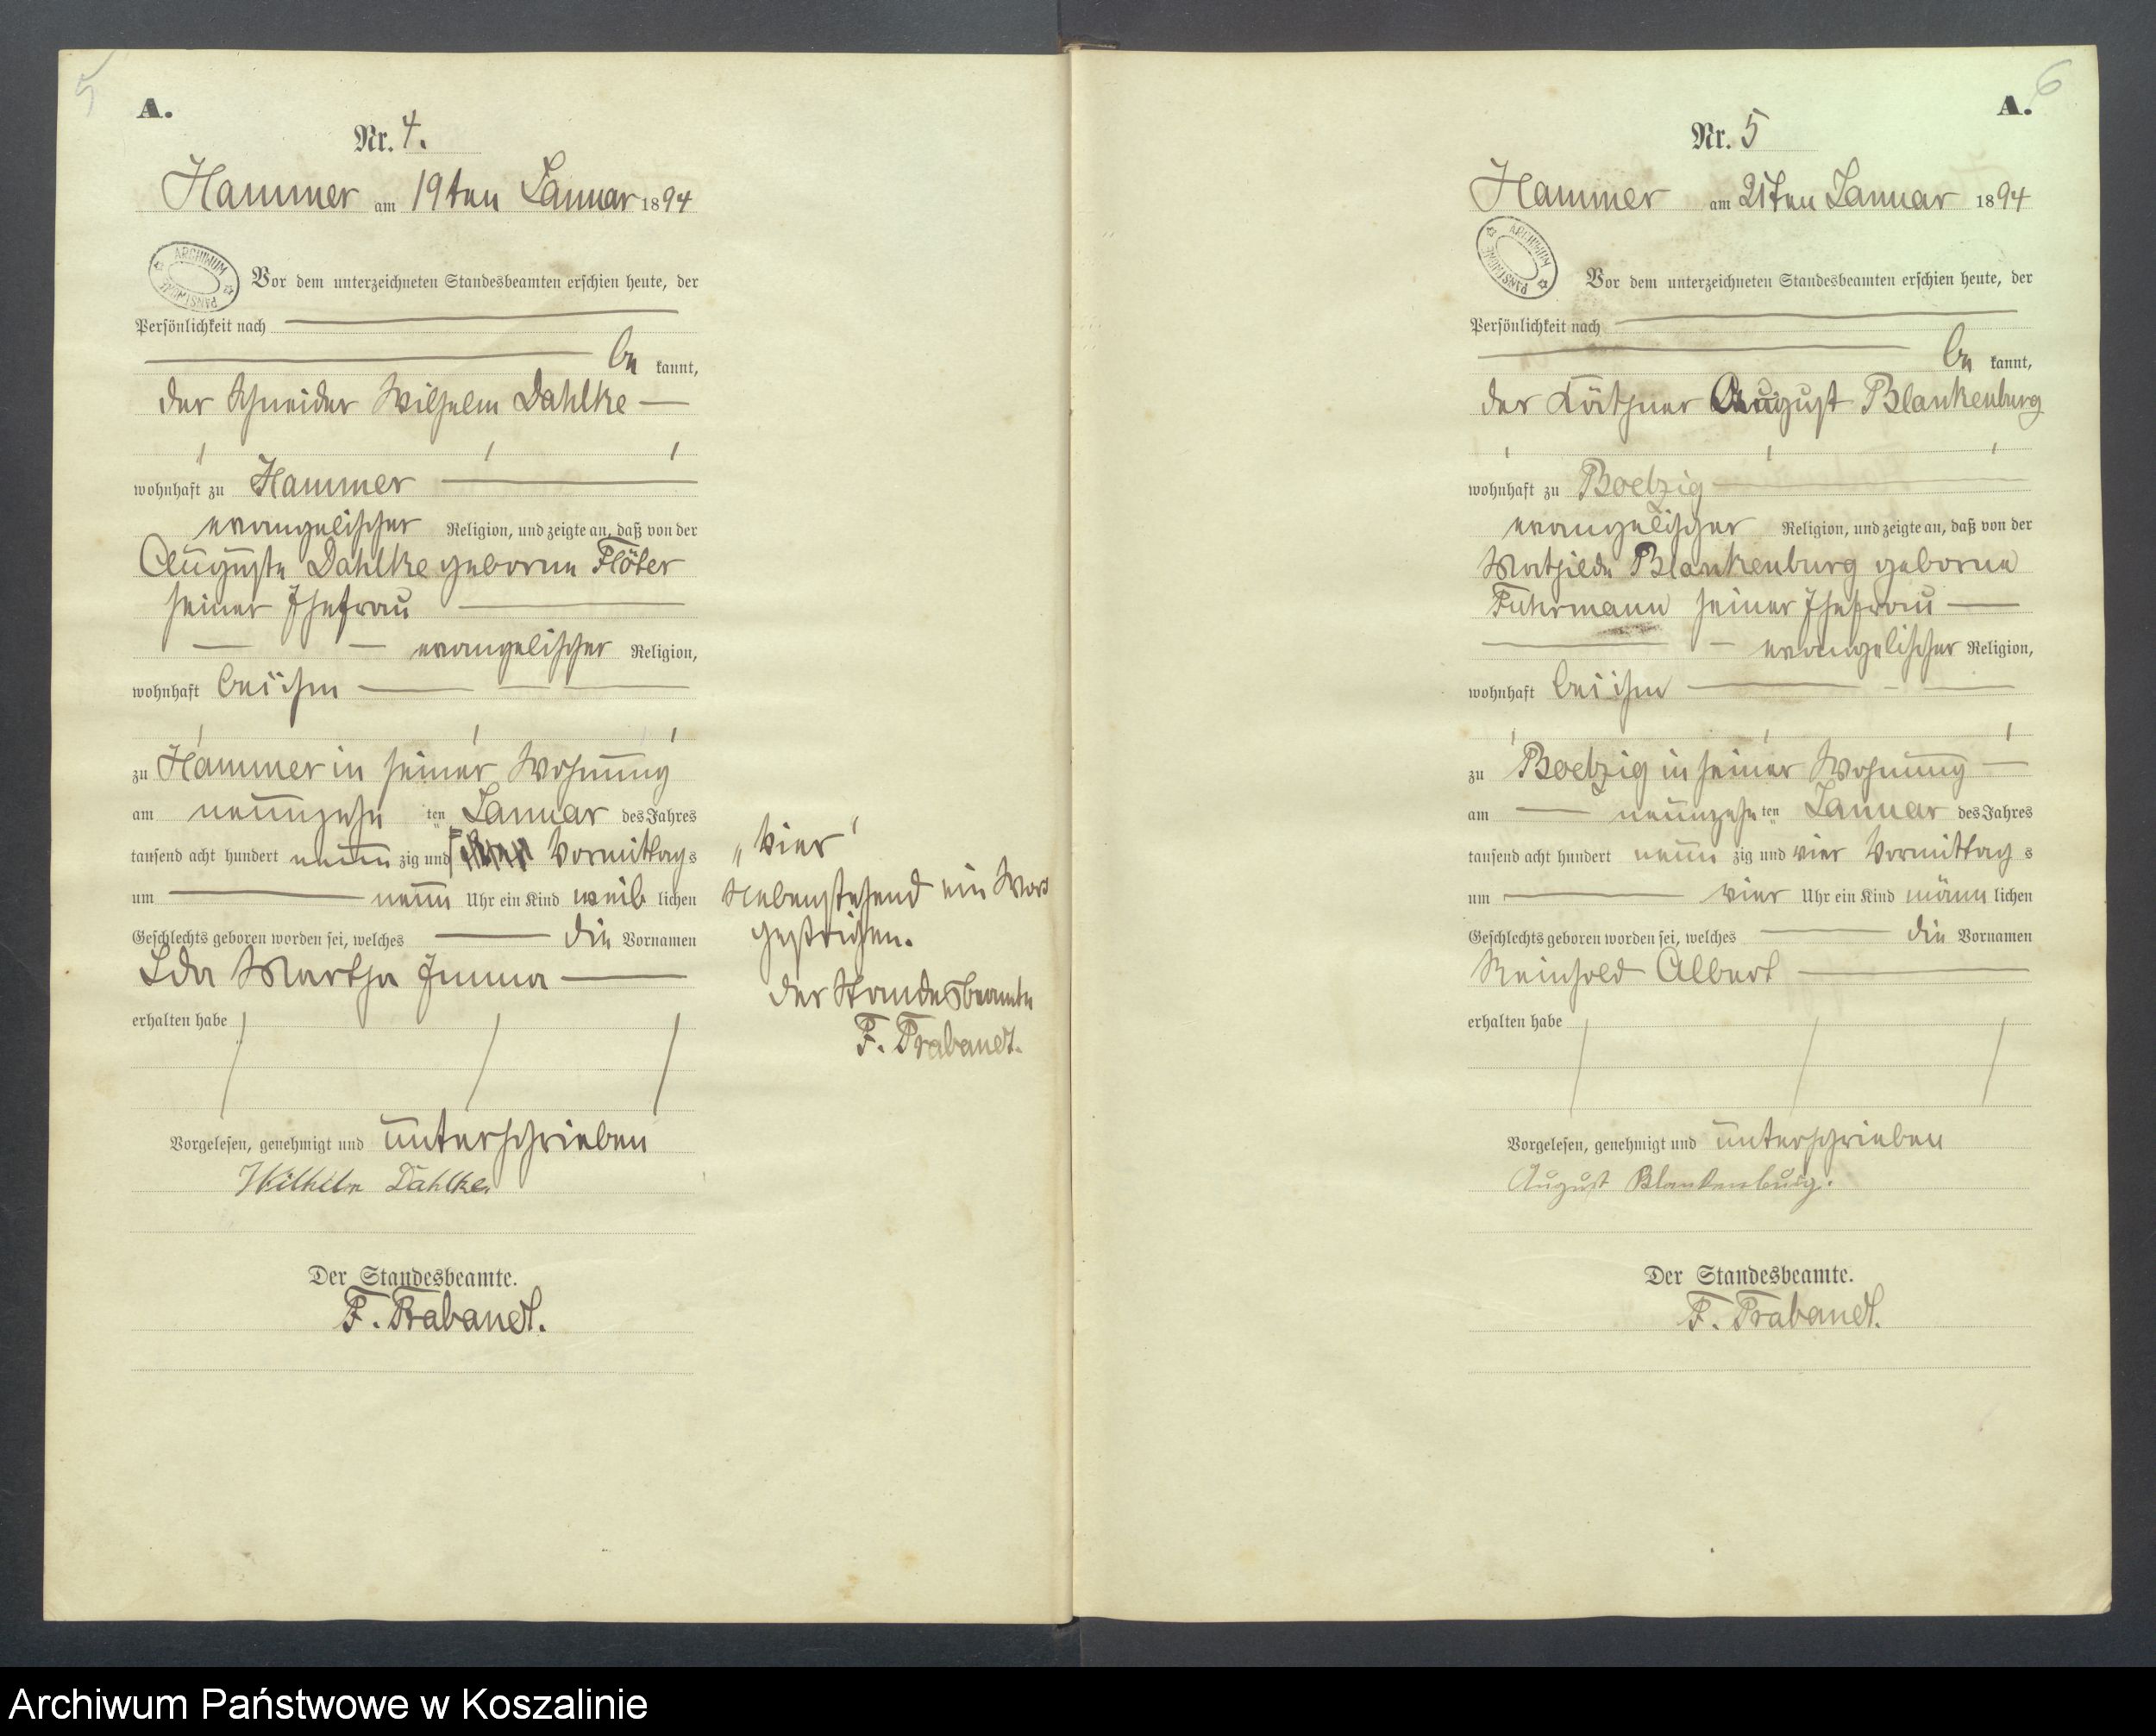 5
A.
Nr. 4.
Hammer am 19ten Januar 1894
ARCHIWUM PAŃSTWOWE
Vor dem unterzeichneten Standesbeamten erschien heute, der
Persönlichkeit nach
be kannt,
der Schneider Wilhelm Dahlke
wohnhaft zu Hammer
evangelischer Religion, und zeigte an, daß von der
Auguste Dahlke geborne Flöter
seiner Ehefrau
evangelischer Religion,
wohnhaft bei ihm
zu Hammer in seiner Wohnung
am neunzehn ten Januar des Jahres
tausend acht hundert neun zig und Vormittag s
um neun Uhr ein Kind weib lichen
Geschlechts geboren worden sei, welches die Vornamen
Ida Martha Emma
erhalten habe
Vorgelesen, genehmigt und unterschrieben
Wilhelm Dahlke
Der Standesbeamte.
F. Trabandt.
„vier“
Nebenstehend ein Wort
gestrichen.
Der Standesbeamte
F. Trabandt.
6
A.
Nr. 5
Hammer am 21ten Januar 1894
ARCHIWUM PAŃSTWOWE
Vor dem unterzeichneten Standesbeamten erschien heute, der
Persönlichkeit nach
be kannt,
der Käthner August Blankenburg
wohnhaft zu Boetzig
evangelischer Religion, und zeigte an, daß von der
Mathilde Blankenburg geborne
Fuhrmann seiner Ehefrau
evangelischer Religion,
wohnhaft bei ihm
zu Boetzig in seiner Wohnung
am neunzehn ten Januar des Jahres
tausend acht hundert neun zig und vier Vormittag s
um vier Uhr ein Kind männ lichen
Geschlechts geboren worden sei, welches die Vornamen
Reinhold Albert
erhalten habe
Vorgelesen, genehmigt und unterschrieben
August Blankenburg.
Der Standesbeamte.
F. Trabandt.
Archiwum Państwowe w Koszalinie